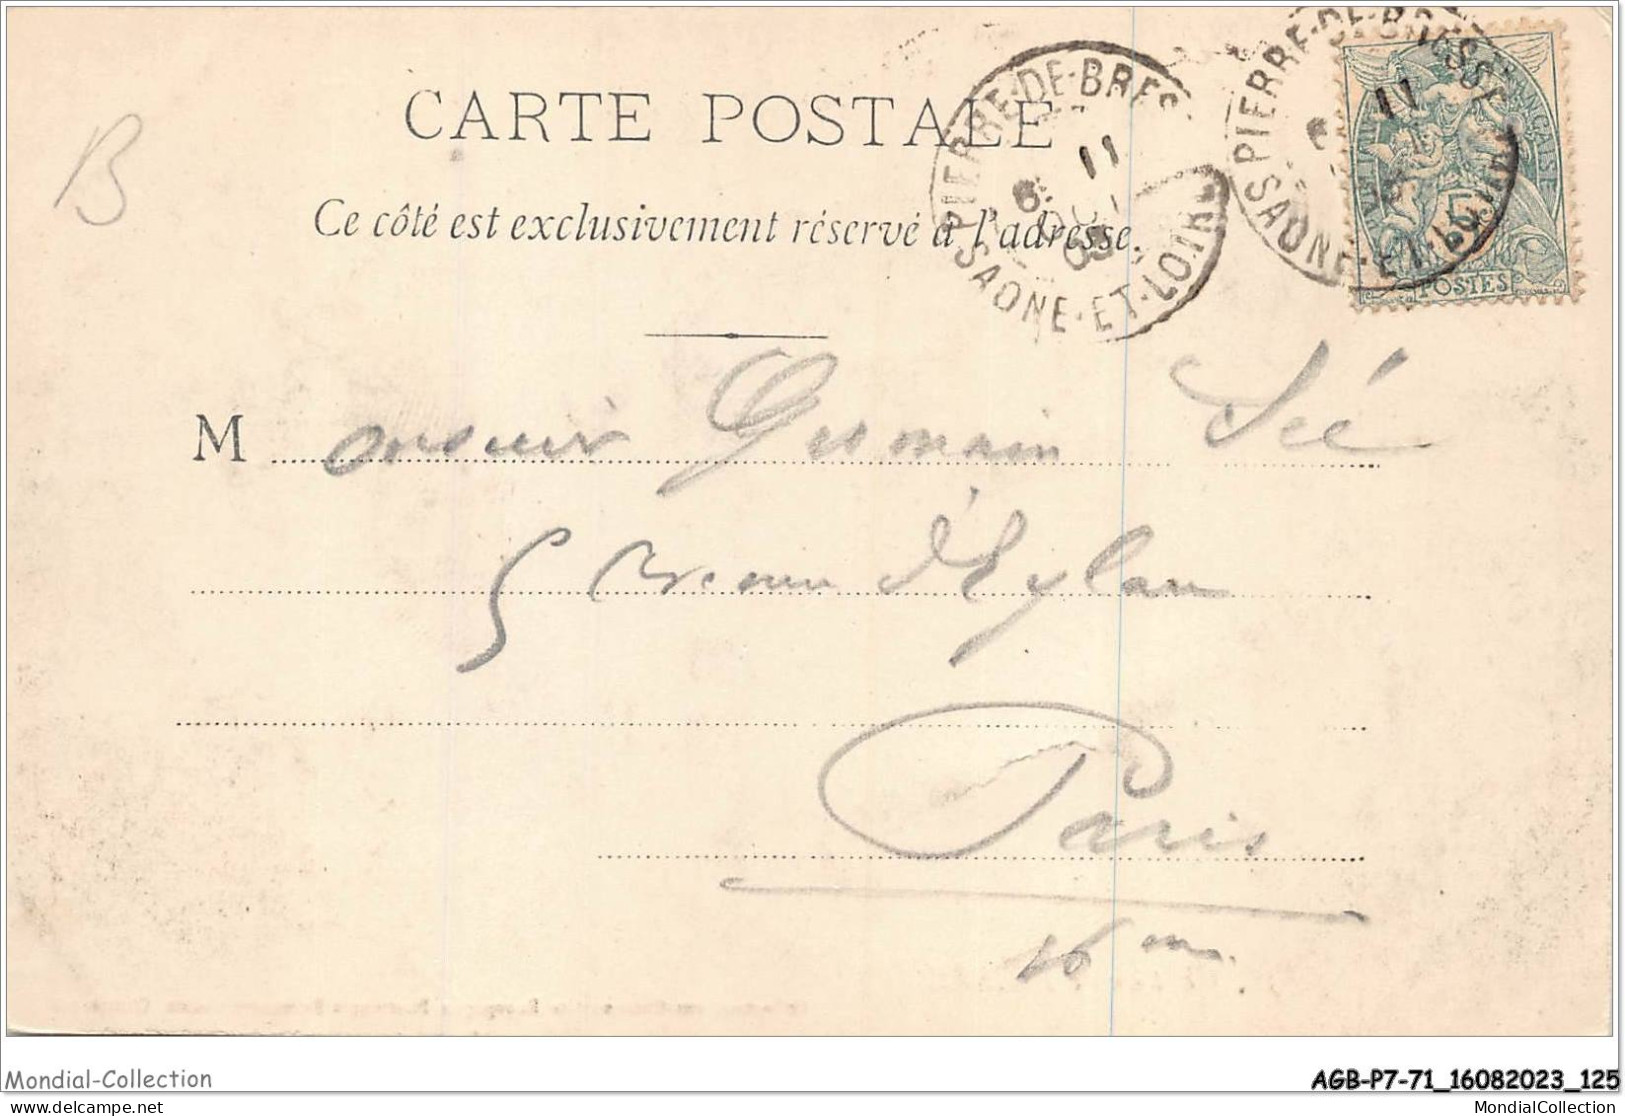 B
CARTE POSTALE
Ce côté est exclusivement réservé à l'adresse.
PIERRE-DE-BRES
11
OCT
03
SAONE-ET-LOIRE
PIERRE-DE-BRESSE
11
SAONE-ET-LOIRE
POSTES
Monsieur Germain Sée
5 Avenue d'Eylau
Paris
16me
Mondial-Collection
AGB-P7-71_16082023_125
www.delcampe.net
MondialCollection